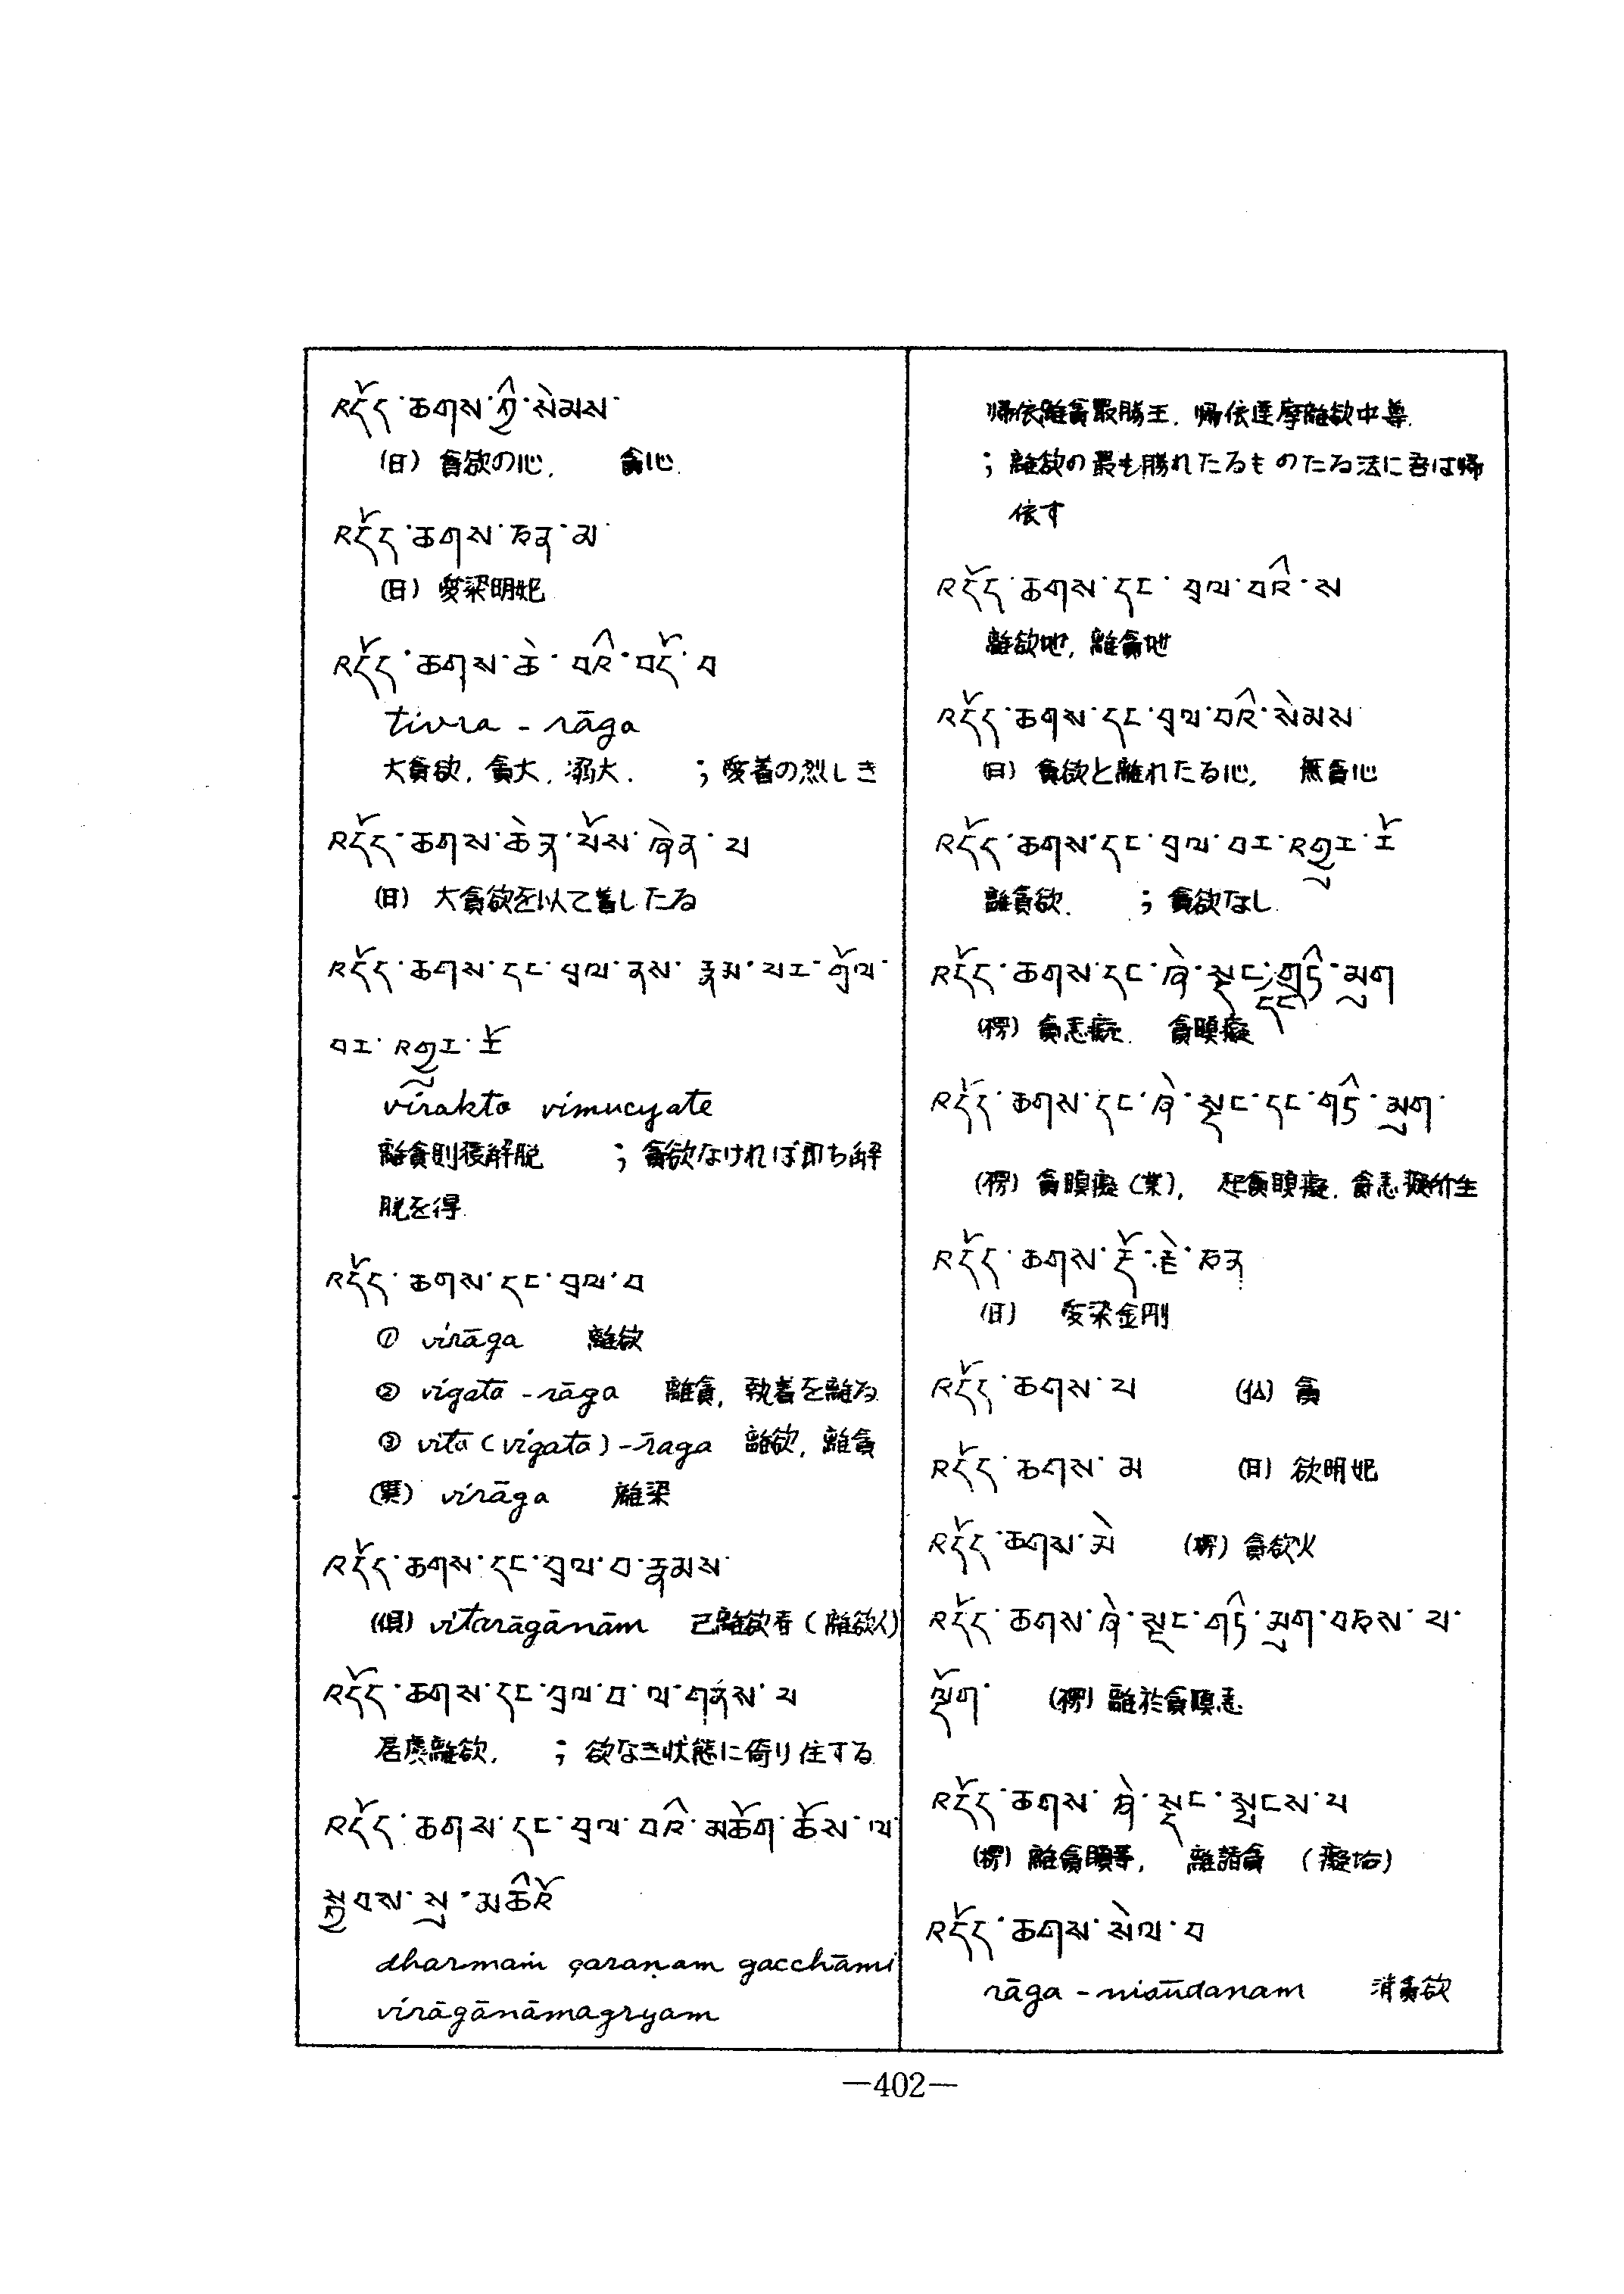 འདོད་ཆགས་ཀྱི་སེམས་
(日) 貪欲の心, 貪心.
འདོད་ཆགས་ཅན་མ
(日) 愛染明妃
འདོད་ཆགས་ཆེ་བའི་བདོ་བ
tivra - rāga
大貪欲, 貪大, 溺大. ; 愛着の烈しき
འདོད་ཆགས་ཆེན་པོས་ཞེན་པ
(日) 大貪欲を以て着したる
འདོད་ཆགས་དང་བྲལ་ནས་རྣམ་པར་གྲོལ་
བར་འགྱུར་རོ
virakto vimucyate
離貪則後解脱 ; 貪欲なければ即ち解
脱を得.
འདོད་ཆགས་དང་བྲལ་བ
① virāga 離欲
② vigata - rāga 離貪, 執着を離る
③ vita (vigata) - rāga 離欲, 離貪
virāga 離染
འདོད་ཆགས་དང་བྲལ་བ་རྣམས་
(倶) vitarāgānām 已離欲者 (離欲人)
འདོད་ཆགས་དང་བྲལ་བ་ལ་གནས་པ
居處離欲, ; 欲なき状態に倚り住する
འདོད་ཆགས་དང་བྲལ་བའི་མཆོག་ཆོས་ལ་
སྐྱབས་སུ་མཆིའོ
dharmaṁ çaraṇam gacchāmi
virāgānāmagryam
帰依離貪最勝王. 帰依達摩離欲中尊.
; 離欲の最も勝れたるものたる法に吾は帰
依す
འདོད་ཆགས་དང་བྲལ་བའི་ས
離欲地, 離貪地
འདོད་ཆགས་དང་བྲལ་བའི་སེམས
(日) 貪欲と離れたる心, 無貪心
འདོད་ཆགས་དང་བྲལ་བར་འགྱུར་རོ
離貪欲. ; 貪欲なし.
འདོད་ཆགས་དང་ཞེ་སྡང་དང་གཏི་མུག
(楞) 貪恚癡. 貪瞋癡
འདོད་ཆགས་དང་ཞེ་སྡང་དང་གཏི་མུག་
(楞) 貪瞋癡 (業), 起貪瞋癡. 貪恚癡所生
འདོད་ཆགས་རྡོ་རྗེ་ཅན
(日) 愛染金剛
འདོད་ཆགས་པ (仏) 貪
འདོད་ཆགས་མ (日) 欲明妃
འདོད་ཆགས་མེ (楞) 貪欲火
འདོད་ཆགས་ཞེ་སྡང་གཏི་མུག་བཅས་པ་
ལྡོག་ (楞) 離於貪瞋恚
འདོད་ཆགས་ཞེ་སྡང་སྤངས་པ
(楞) 離貪瞋等, 離諸貪
འདོད་ཆགས་སེལ་བ
rāga - nisūdanam 消貪欲
—402—